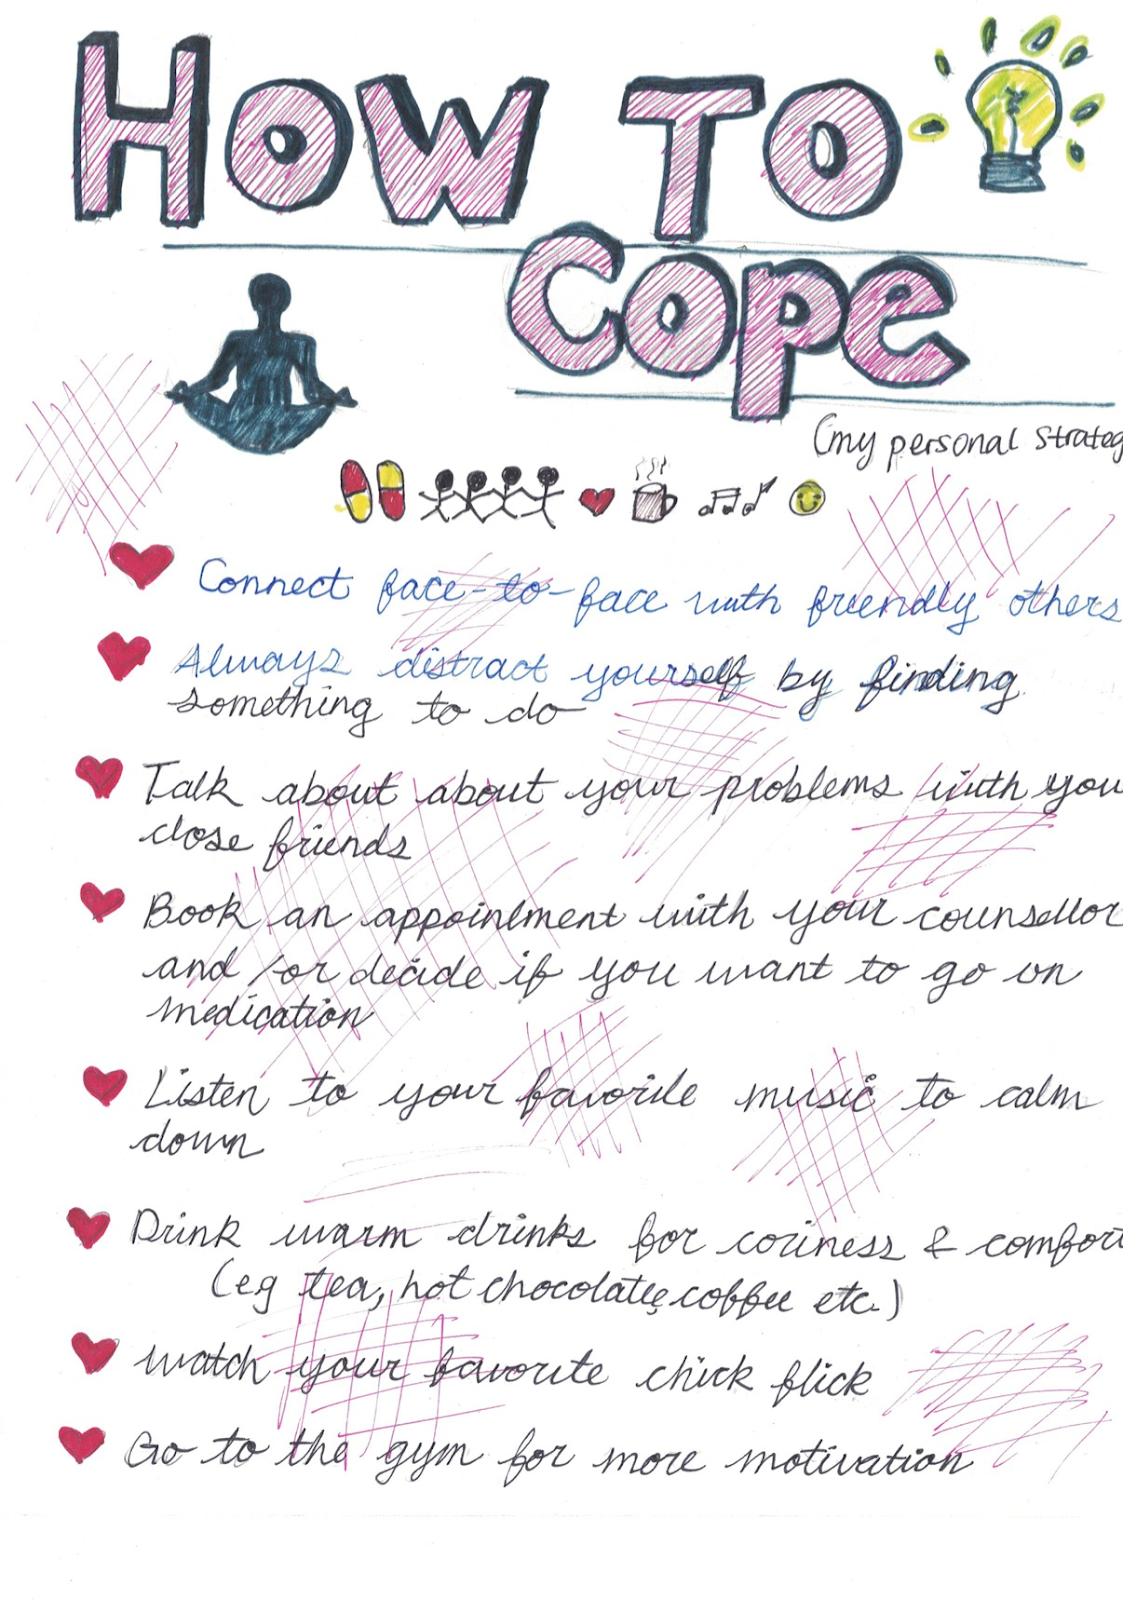 How To
Cope
(my personal strateg
Connect face-to-face with friendly others
Always distract yourself by finding
something to do
Talk about about your problems with you
close friends
Book an appointment with your counsellor
and /or decide if you want to go on
medication
Listen to your favorite music to calm
down
Drink warm drinks for coziness & comfort
(eg tea, hot chocolate, coffee etc.)
watch your favorite chick flick
Go to the gym for more motivation